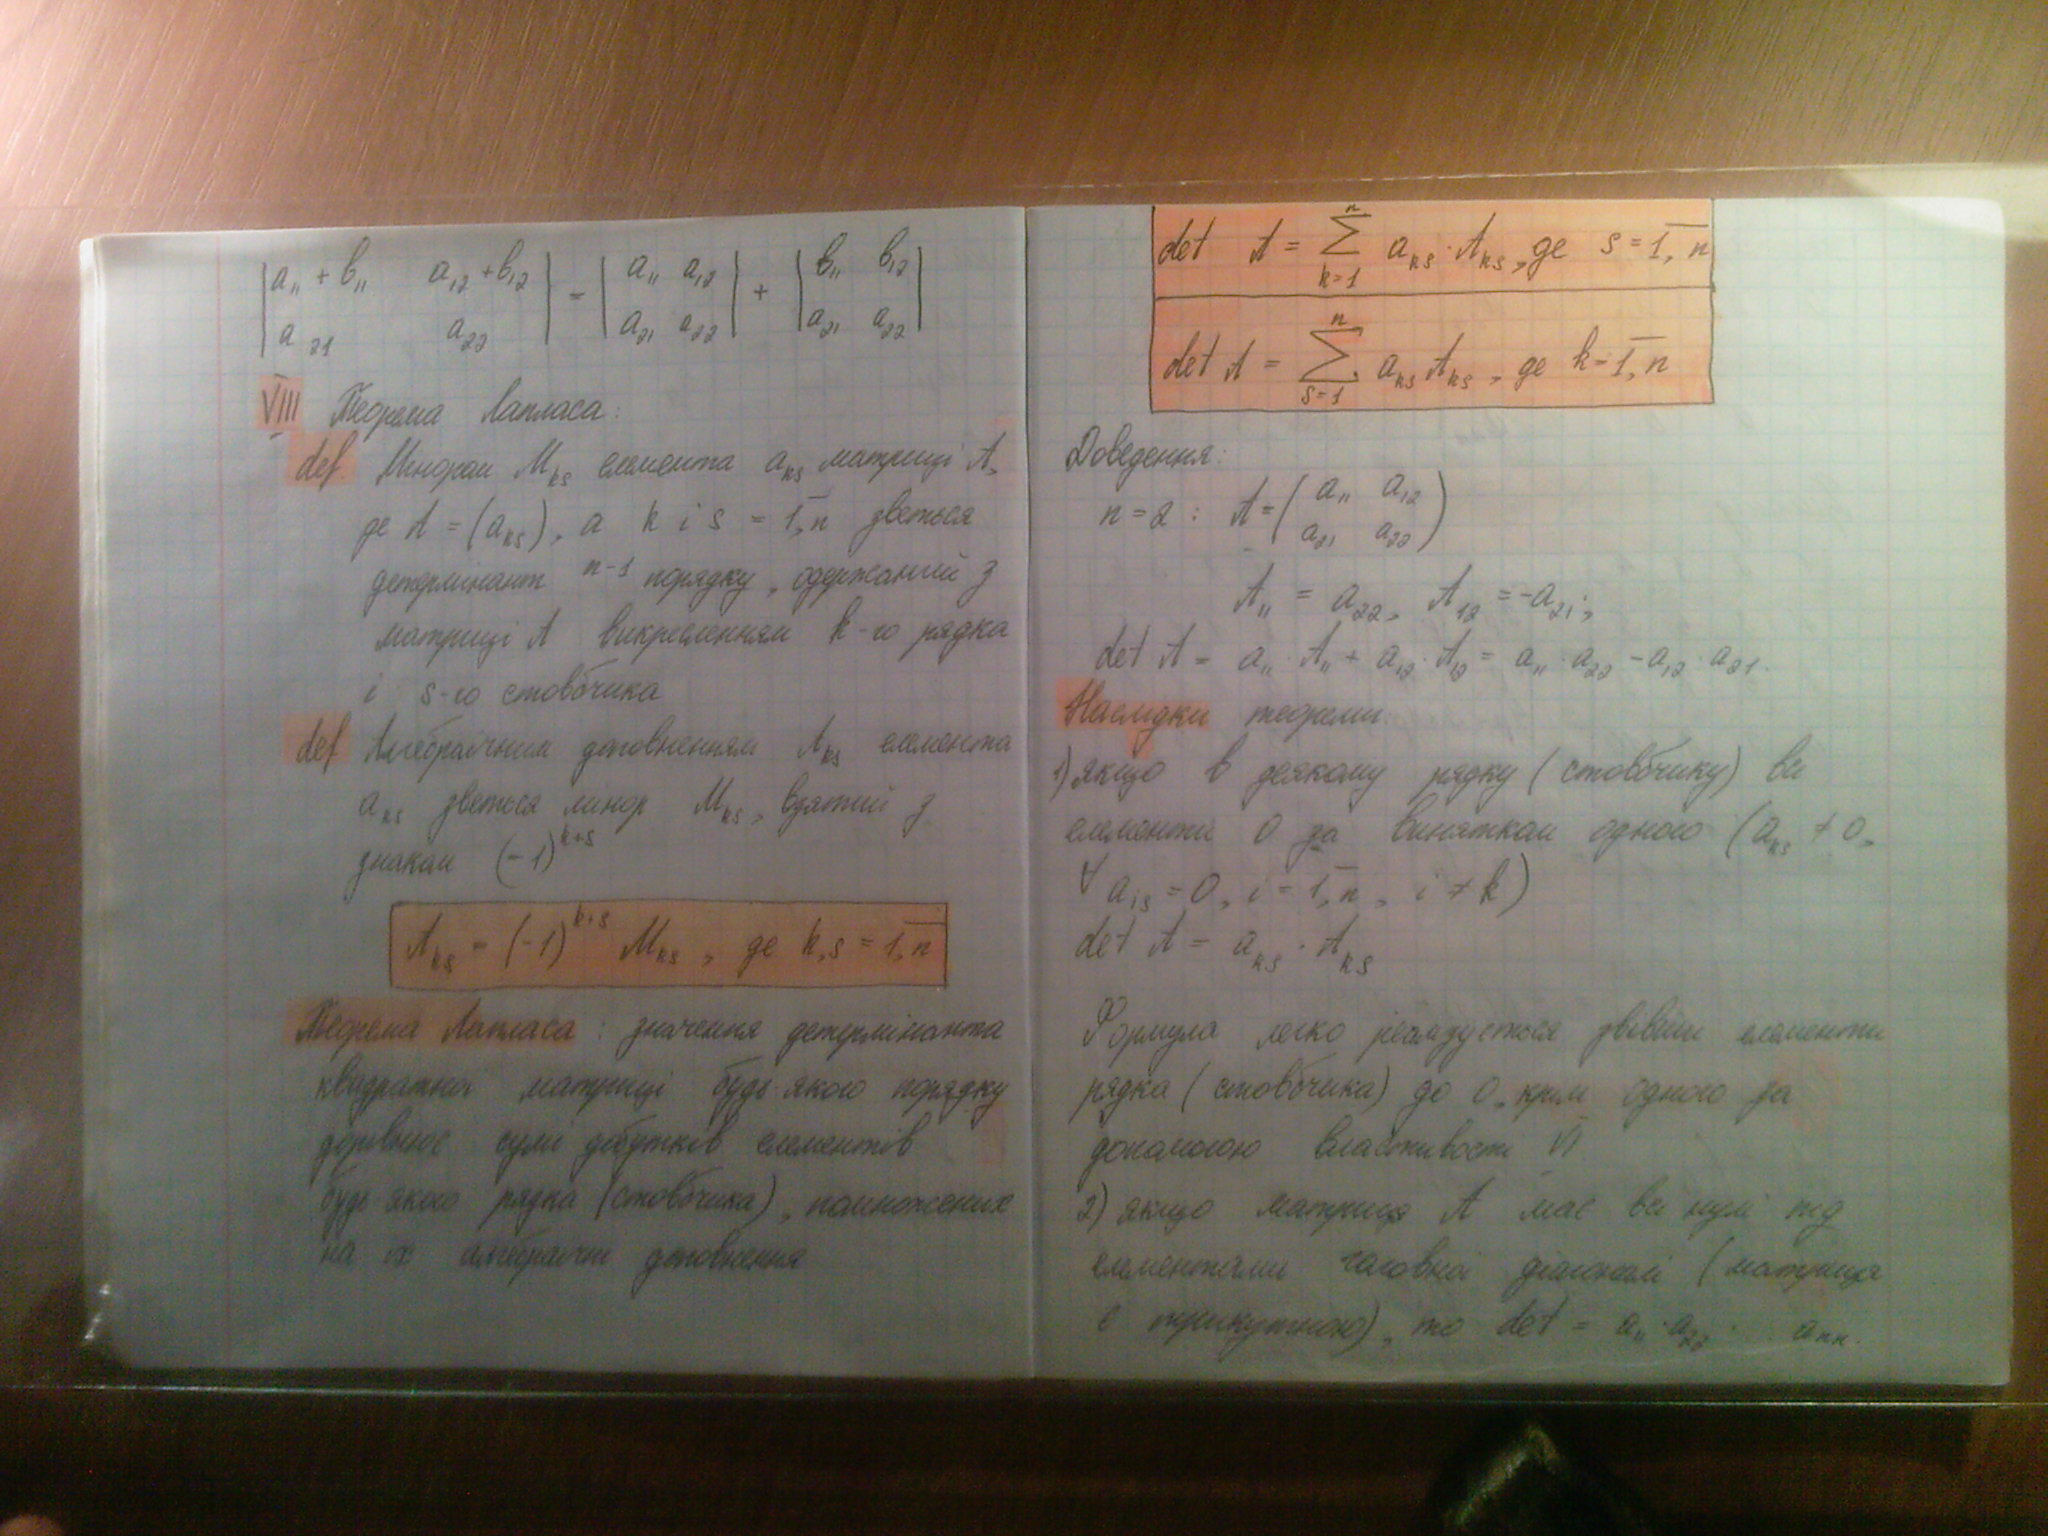 |a₁₁ + b₁₁ a₁₂ + b₁₂| = |a₁₁ a₁₂| + |b₁₁ b₁₂|
|a₂₁ a₂₂| |a₂₁ a₂₂| |a₂₁ a₂₂|
VIII Теорема Лапласа:
def. Мінором Mₖₛ елемента aₖₛ матриці A,
де A = (aₖₛ), а k i s = 1,n̅ зветься
детермінант n-1 порядку, одержаний з
матриці A викресленням k-го рядка
і s-го стовбчика
def Алгебраїчним доповненням Aₖₛ елемента
aₖₛ зветься мінор Mₖₛ, взятий з
знаком (-1)^{k+s}
Aₖₛ = (-1)^{k+s} Mₖₛ, де k,s = 1,n̅
Теорема Лапласа: значення детермінанта
квадратної матриці будь-якого порядку
дорівнює сумі добутків елементів
будь-якого рядка (стовбчика), помножених
на їх алгебраїчні доповнення
det A = ∑_{k=1}^{n} aₖₛ · Aₖₛ, де s = 1,n̅
det A = ∑_{s=1}^{n} aₖₛ Aₖₛ, де k = 1,n̅
Доведення:
n = 2 : A = (a₁₁ a₁₂
a₂₁ a₂₂)
A₁₁ = a₂₂, A₁₂ = -a₂₁;
det A = a₁₁ · A₁₁ + a₁₂ · A₁₂ = a₁₁ · a₂₂ - a₁₂ · a₂₁.
Наслідки теореми:
1) якщо в деякому рядку (стовбчику) всі
елементи 0 за винятком одного (aₖₛ ≠ 0,
∀ aᵢₛ = 0, i = 1,n̅, i ≠ k)
det A = aₖₛ · Aₖₛ
Формула легко реалізується звівши елементи
рядка (стовбчика) до 0, крім одного за
допомогою властивості VI
2) якщо матриця A має всі нулі під
елементами головної діагоналі (матриця
є трикутною), то det = a₁₁ · a₂₂ · aₙₙ.